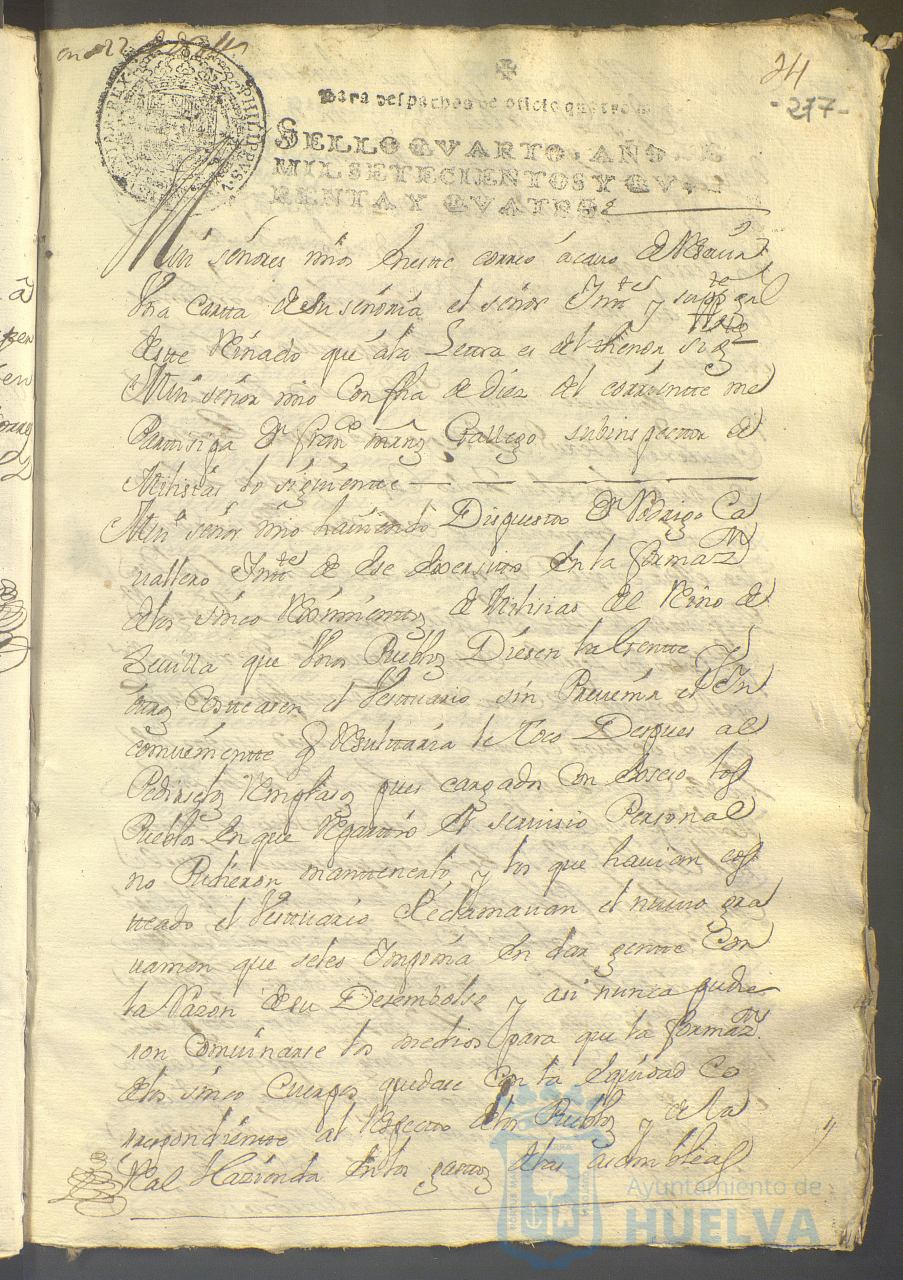 24
-217-
PHILIPPUS V
Para despachos de oficio quatro
SELLO QVARTO, AÑO DE
MIL SETECIENTOS Y QVA
RENTA Y QVATRO
Mui señores mios Eneste correo acavo de Resivir
Vna Carta de su señoria el señor Intte y
deste Reinado que ala Letra es del thenor
Mui señor mio Con fha de diez del corriente me
Partisipa Dn Franco Gallego subinspector de
Milisias lo siguiente
Mui señor mio haviendo Dispuesto Dn Rodrigo Ca
vallero Intte de ese exersito En la formaz
delos sinco Reximientos de Milisias del Reino de
Sevilla que Unos Pueblos Diesen la Gente Y
otros Costeasen el Vestuario sin Prevenir el In
combeniente q Resultaria le Toco Despues al
Pedirselos Remplasos pues cargados Con Exseso los
Pueblos En que Repartio el servisio Personal
no Pudieron mantenerlo y los que havian cos
teado el Vestuario Reclamavan el nuevo gra
vamen que seles Imponia En dar gente Con
la Razon de su Desembolso y asi nunca pudie
ron Convinarse los medios para que la formaz
delos sinco Cuerpos quedase Con la Equidad Co
rrespondiente al Respecto delos Pueblos y de la
Real Hazienda En los gastos delas asambleas
Ayuntamiento de
HUELVA